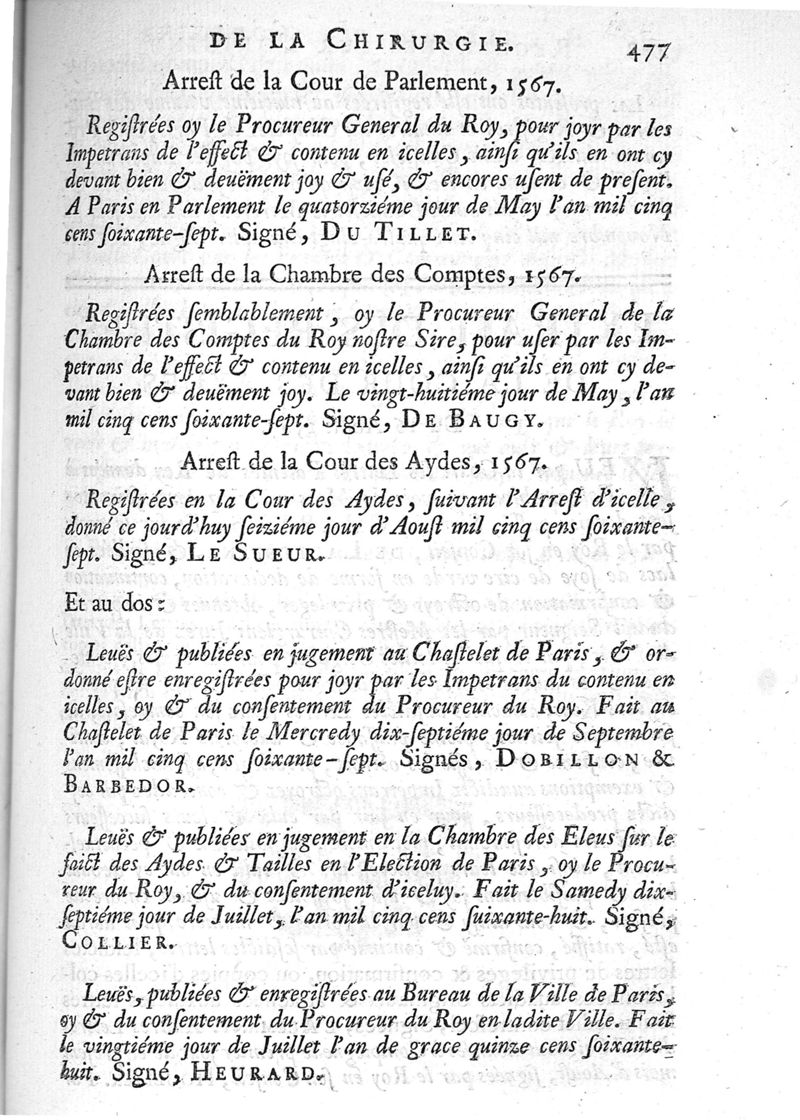 DE LA CHIRURGIE. 477
Arreſt de la Cour de Parlement, 1567.
Regiſtrées oy le Procureur General du Roy, pour joyr par les
Impetrans de l'effect & contenu en icelles, ainſi qu'ils en ont cy
devant bien & deuëment joy & uſé, & encores uſent de preſent.
A Paris en Parlement le quatorziéme jour de May l'an mil cinq
cens ſoixante-ſept. Signé, DU TILLET.
Arreſt de la Chambre des Comptes, 1567.
Regiſtrées ſemblablement, oy le Procureur General de la
Chambre des Comptes du Roy noſtre Sire, pour uſer par les Im-
petrans de l'effect & contenu en icelles, ainſi qu'ils en ont cy de-
vant bien & deuëment joy. Le vingt-huitiéme jour de May, l'an
mil cinq cens ſoixante-ſept. Signé, DE BAUGY.
Arreſt de la Cour des Aydes, 1567.
Regiſtrées en la Cour des Aydes, ſuivant l'Arreſt d'icelle,
donné ce jourd'huy ſeiziéme jour d'Aouſt mil cinq cens ſoixante-
ſept. Signé, LE SUEUR.
Et au dos:
Leuës & publiées en jugement au Chaſtelet de Paris, & or-
donné eſtre enregiſtrées pour joyr par les Impetrans du contenu en
icelles, oy & du conſentement du Procureur du Roy. Fait au
Chaſtelet de Paris le Mercredy dix-ſeptiéme jour de Septembre
l'an mil cinq cens ſoixante-ſept. Signés, DOBILLON &
BARBEDOR.
Leuës & publiées en jugement en la Chambre des Eleus ſur le
faict des Aydes & Tailles en l'Election de Paris, oy le Procu-
reur du Roy, & du conſentement d'iceluy. Fait le Samedy dix-
ſeptiéme jour de Juillet, l'an mil cinq cens ſuixante-huit. Signé,
COLLIER.
Leuës, publiées & enregiſtrées au Bureau de la Ville de Paris,
oy & du conſentement du Procureur du Roy en ladite Ville. Fait
le vingtiéme jour de Juillet l'an de grace quinze cens ſoixante-
huit. Signé, HEURARD.